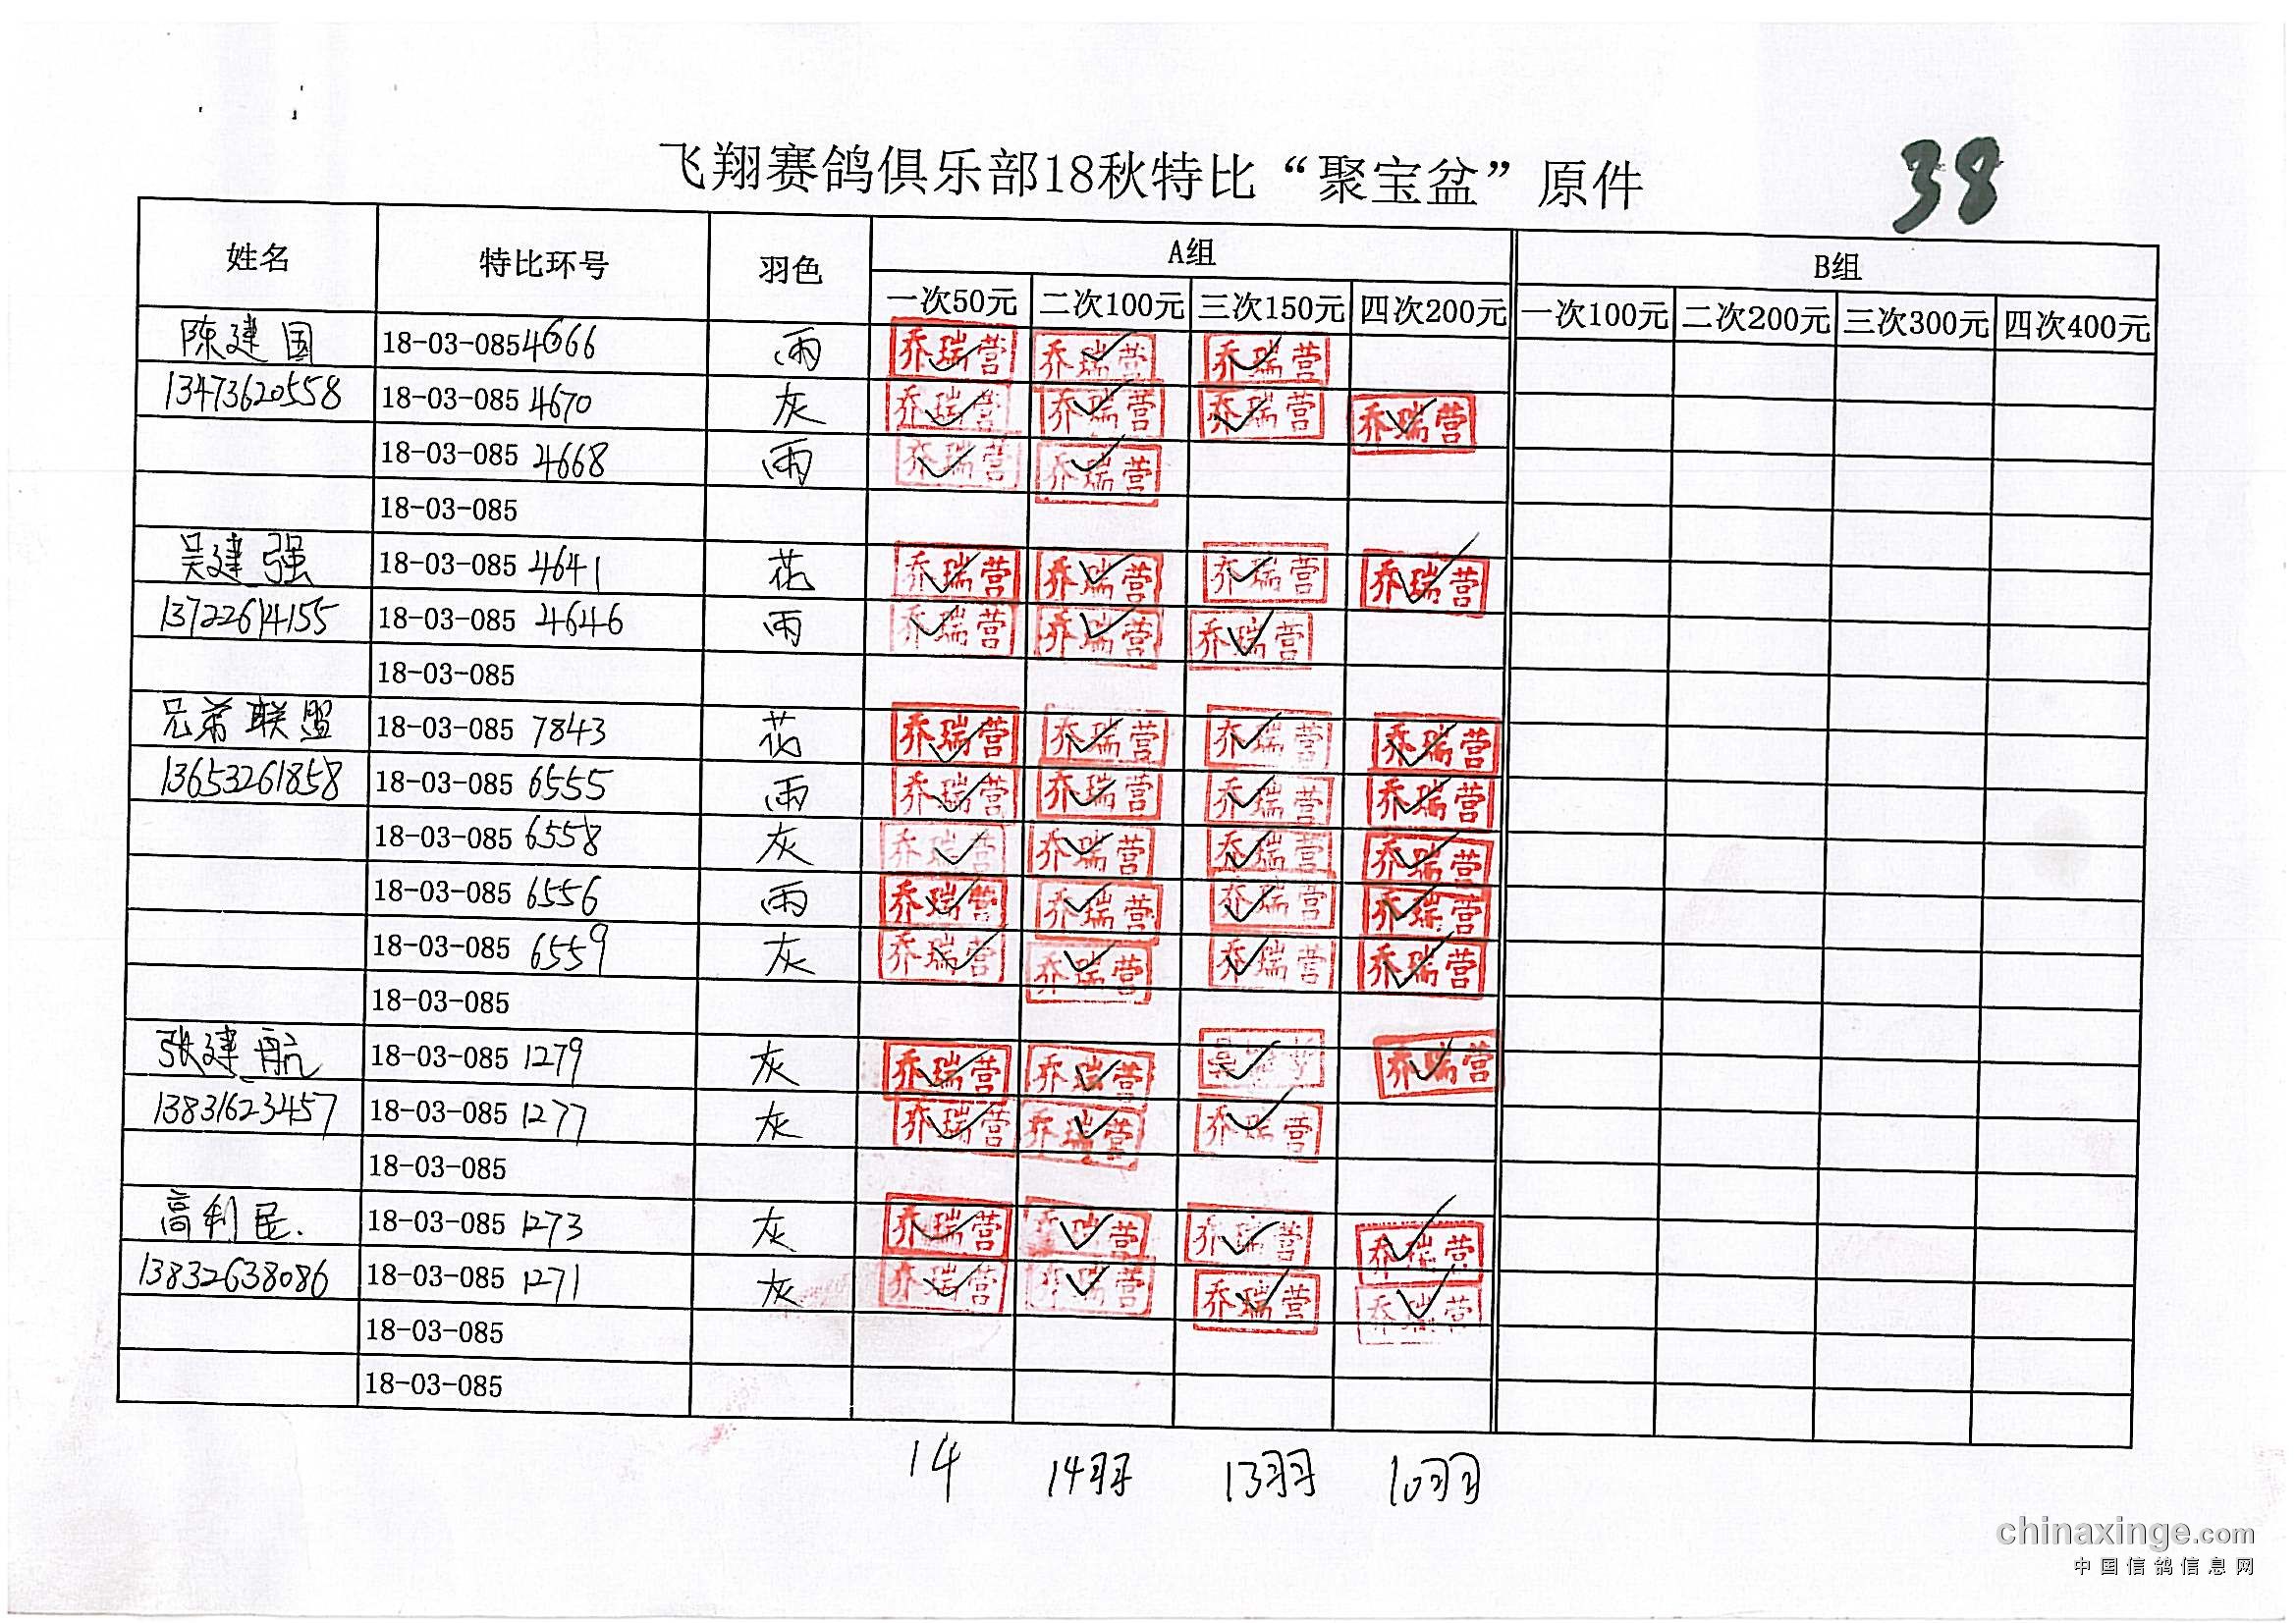 飞翔赛鸽俱乐部18秋特比“聚宝盆”原件 38
姓名 特比环号 羽色 A组 B组
一次50元 二次100元 三次150元 四次200元 一次100元 二次200元 三次300元 四次400元
陈建国 18-03-0854666 雨 乔瑞营 乔瑞营 乔瑞营
13473620558 18-03-085 4670 灰 乔瑞营 乔瑞营 乔瑞营 乔瑞营
18-03-085 4668 雨 乔瑞营 乔瑞营
18-03-085
吴建强 18-03-085 4641 花 乔瑞营 乔瑞营 乔瑞营 乔瑞营
13722614155 18-03-085 4646 雨 乔瑞营 乔瑞营 乔瑞营
18-03-085
兄弟联盟 18-03-085 7843 花 乔瑞营 乔瑞营 乔瑞营 乔瑞营
13653261858 18-03-085 6555 雨 乔瑞营 乔瑞营 乔瑞营 乔瑞营
18-03-085 6558 灰 乔瑞营 乔瑞营 乔瑞营 乔瑞营
18-03-085 6556 雨 乔瑞营 乔瑞营 乔瑞营 乔瑞营
18-03-085 6559 灰 乔瑞营 乔瑞营 乔瑞营 乔瑞营
18-03-085
张建航 18-03-085 1279 灰 乔瑞营 乔瑞营 乔瑞营
13831623457 18-03-085 1277 灰 乔瑞营 乔瑞营 乔瑞营
18-03-085
高利民. 18-03-085 1273 灰 乔瑞营 乔瑞营 乔瑞营 乔瑞营
13832638086 18-03-085 1271 灰 乔瑞营 乔瑞营 乔瑞营 乔瑞营
18-03-085
18-03-085
14 14羽 13羽 10羽
chinaxinge.com
中国信鸽信息网